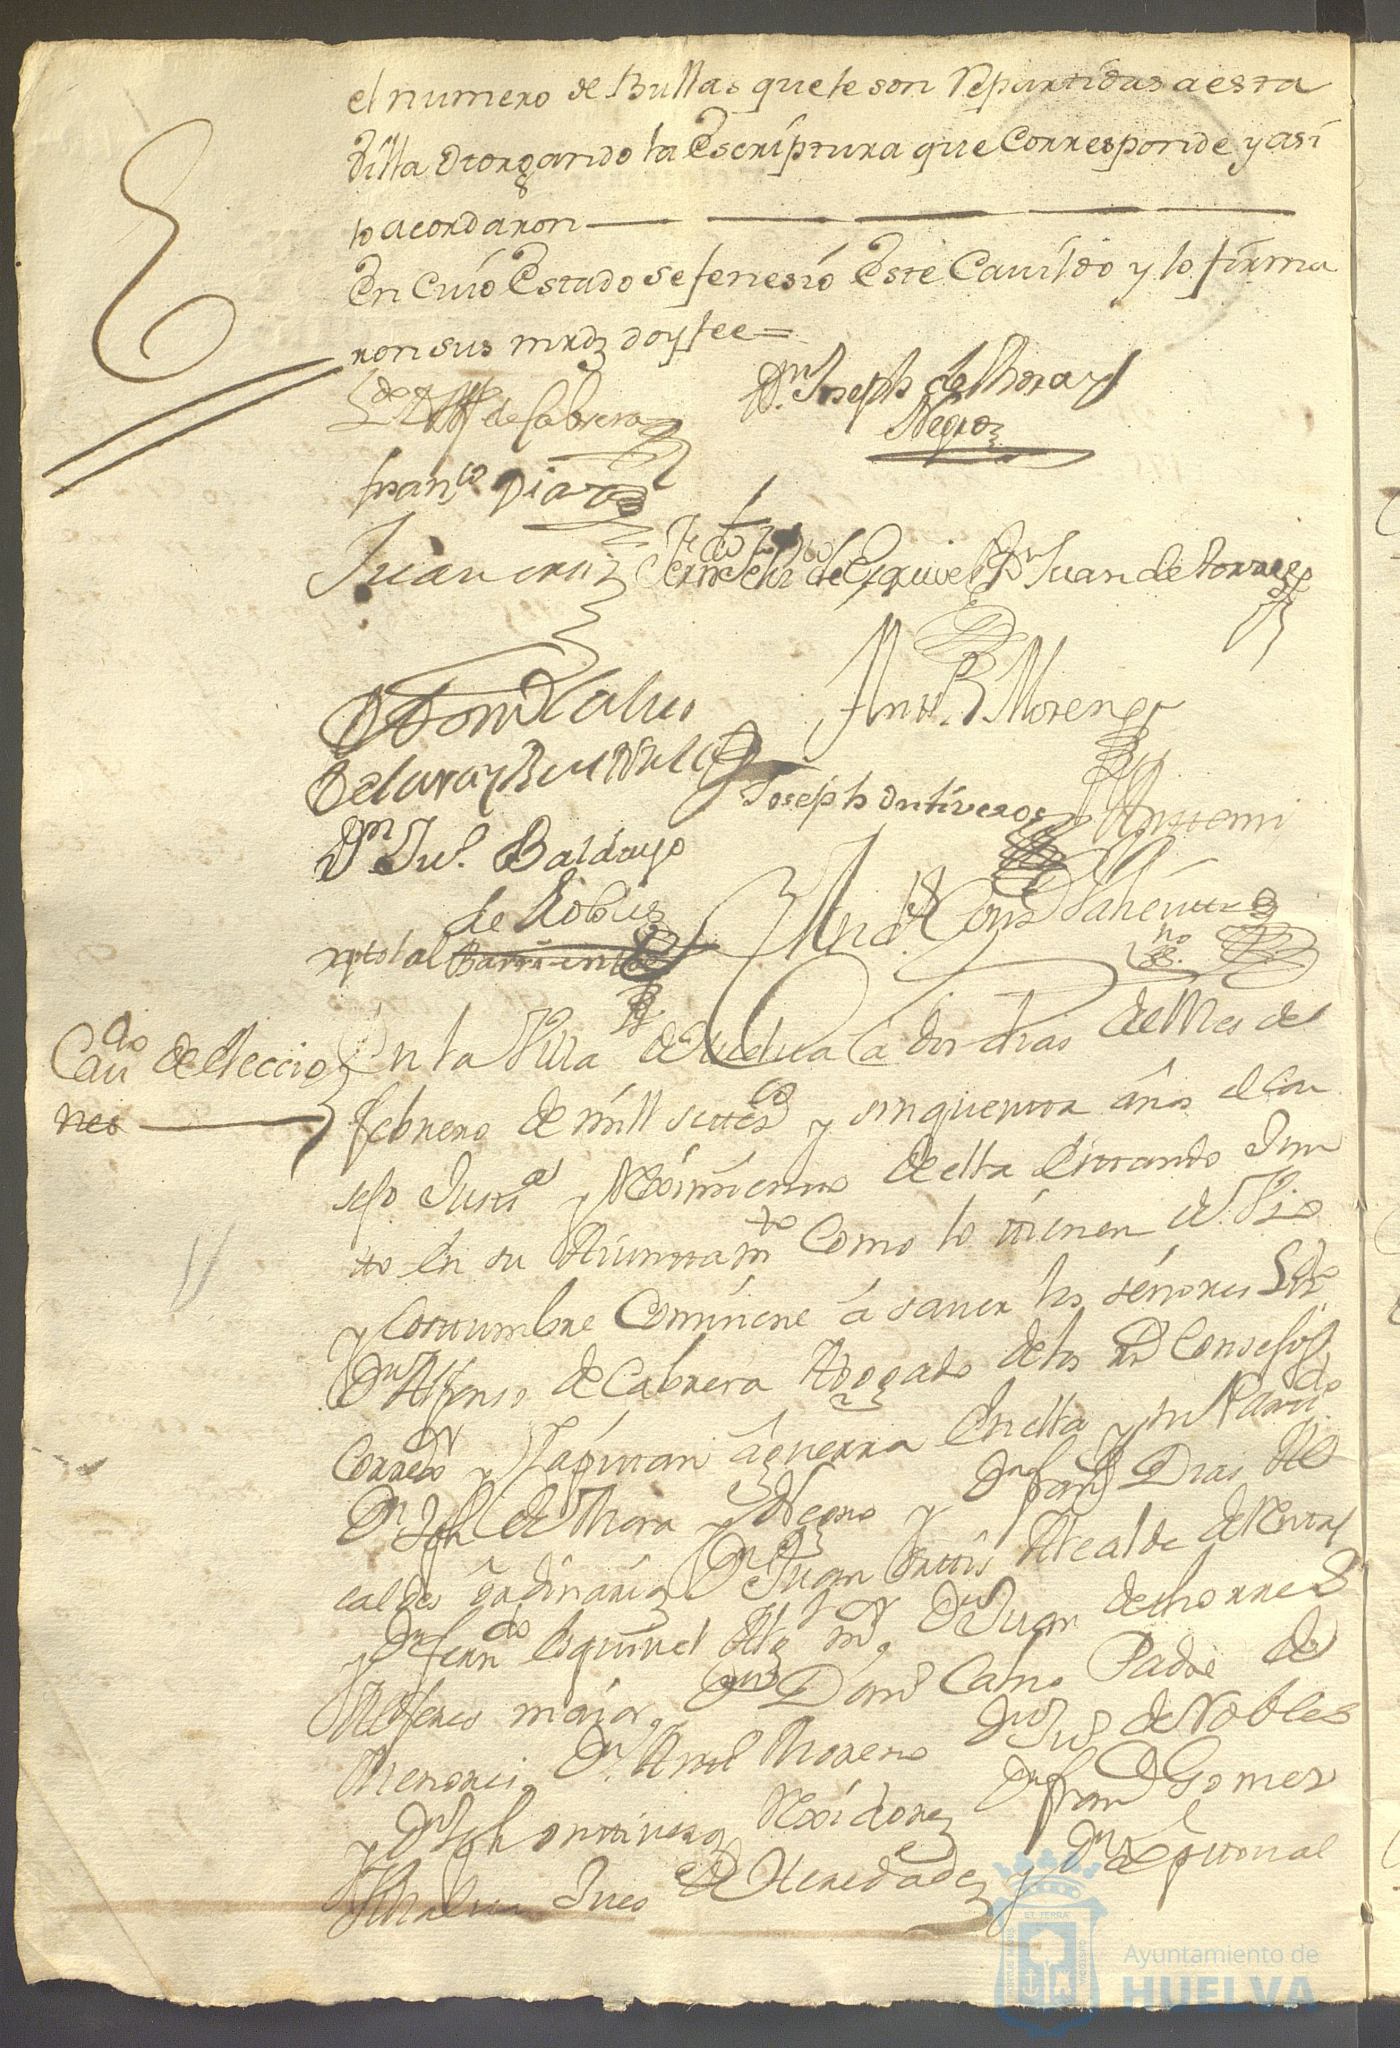 el numero de Bullas que le son Repartidas a esta
Villa Otorgando la Escriptura que Corresponde y asi
lo acordaron
En Cuio Estado se fenesio Este Cavildo y lo firma
ron sus mrdz doy fee =
Ldo Dn Alfo de Cabrera
Dn Joseph de Mora y
Negro
Franco Diaz
Juan Ortiz
de Esquivel
Dn Juan de torres
D Domo Calvo
de Lara y
Anto Moreno
Joseph Ontiveros
Dn Jul. Baldayo
de Robles
Ante mi
xptoval Barrientos
Cavdo de eleccio
nes
En la Villa de Huelva a dos dias del Mes de
febrero de mill settesos y sinquentta años el Con
sejo Justta y Reximientto de ella Esttando Jun
tto En su Aiunttamto Como lo ttienen de Vso
y Costtumbre Combiene a saver los señores Ldo
Dn Alfonso de Cabrera Abogado de los Rs Consejos
Corredor y Capittan a guerra En ella y su Parttdo
Dn Joph de Mora y Negro y Dn Franco Dias Al
caldes ordinarios Dn Juan Orttis Alcalde de
y Dn Ferndo Esquivel Alg mor Dn Juan de thorres
Alferes maior Dn Domo Calvo Padre de
Menores Dn Anto Moreno Dn Jul de Robles
y Dn Joph onttiveros Rexidores Dn Franco Gomes
Jues de Heredades y Dn Xpttoval
ET TERRÆ
Ayuntamiento de
HUELVA